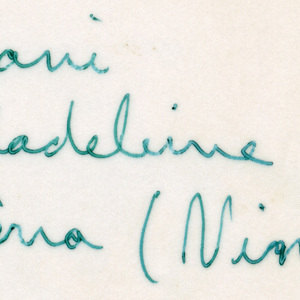 ani
adeleine
ena (Nin